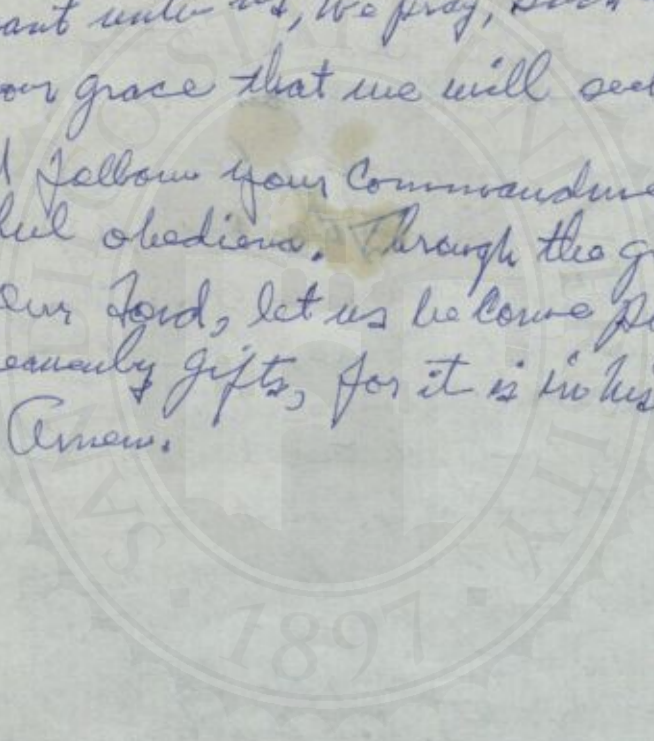 ant unto us, we pray, such
our grace that we will see
d follow your Commandme
ful obedience. Through the g
our Lord, let us become p
eavenly gifts, for it is in his
Amen.
SAN DIEGO STATE UNIVERSITY
1897